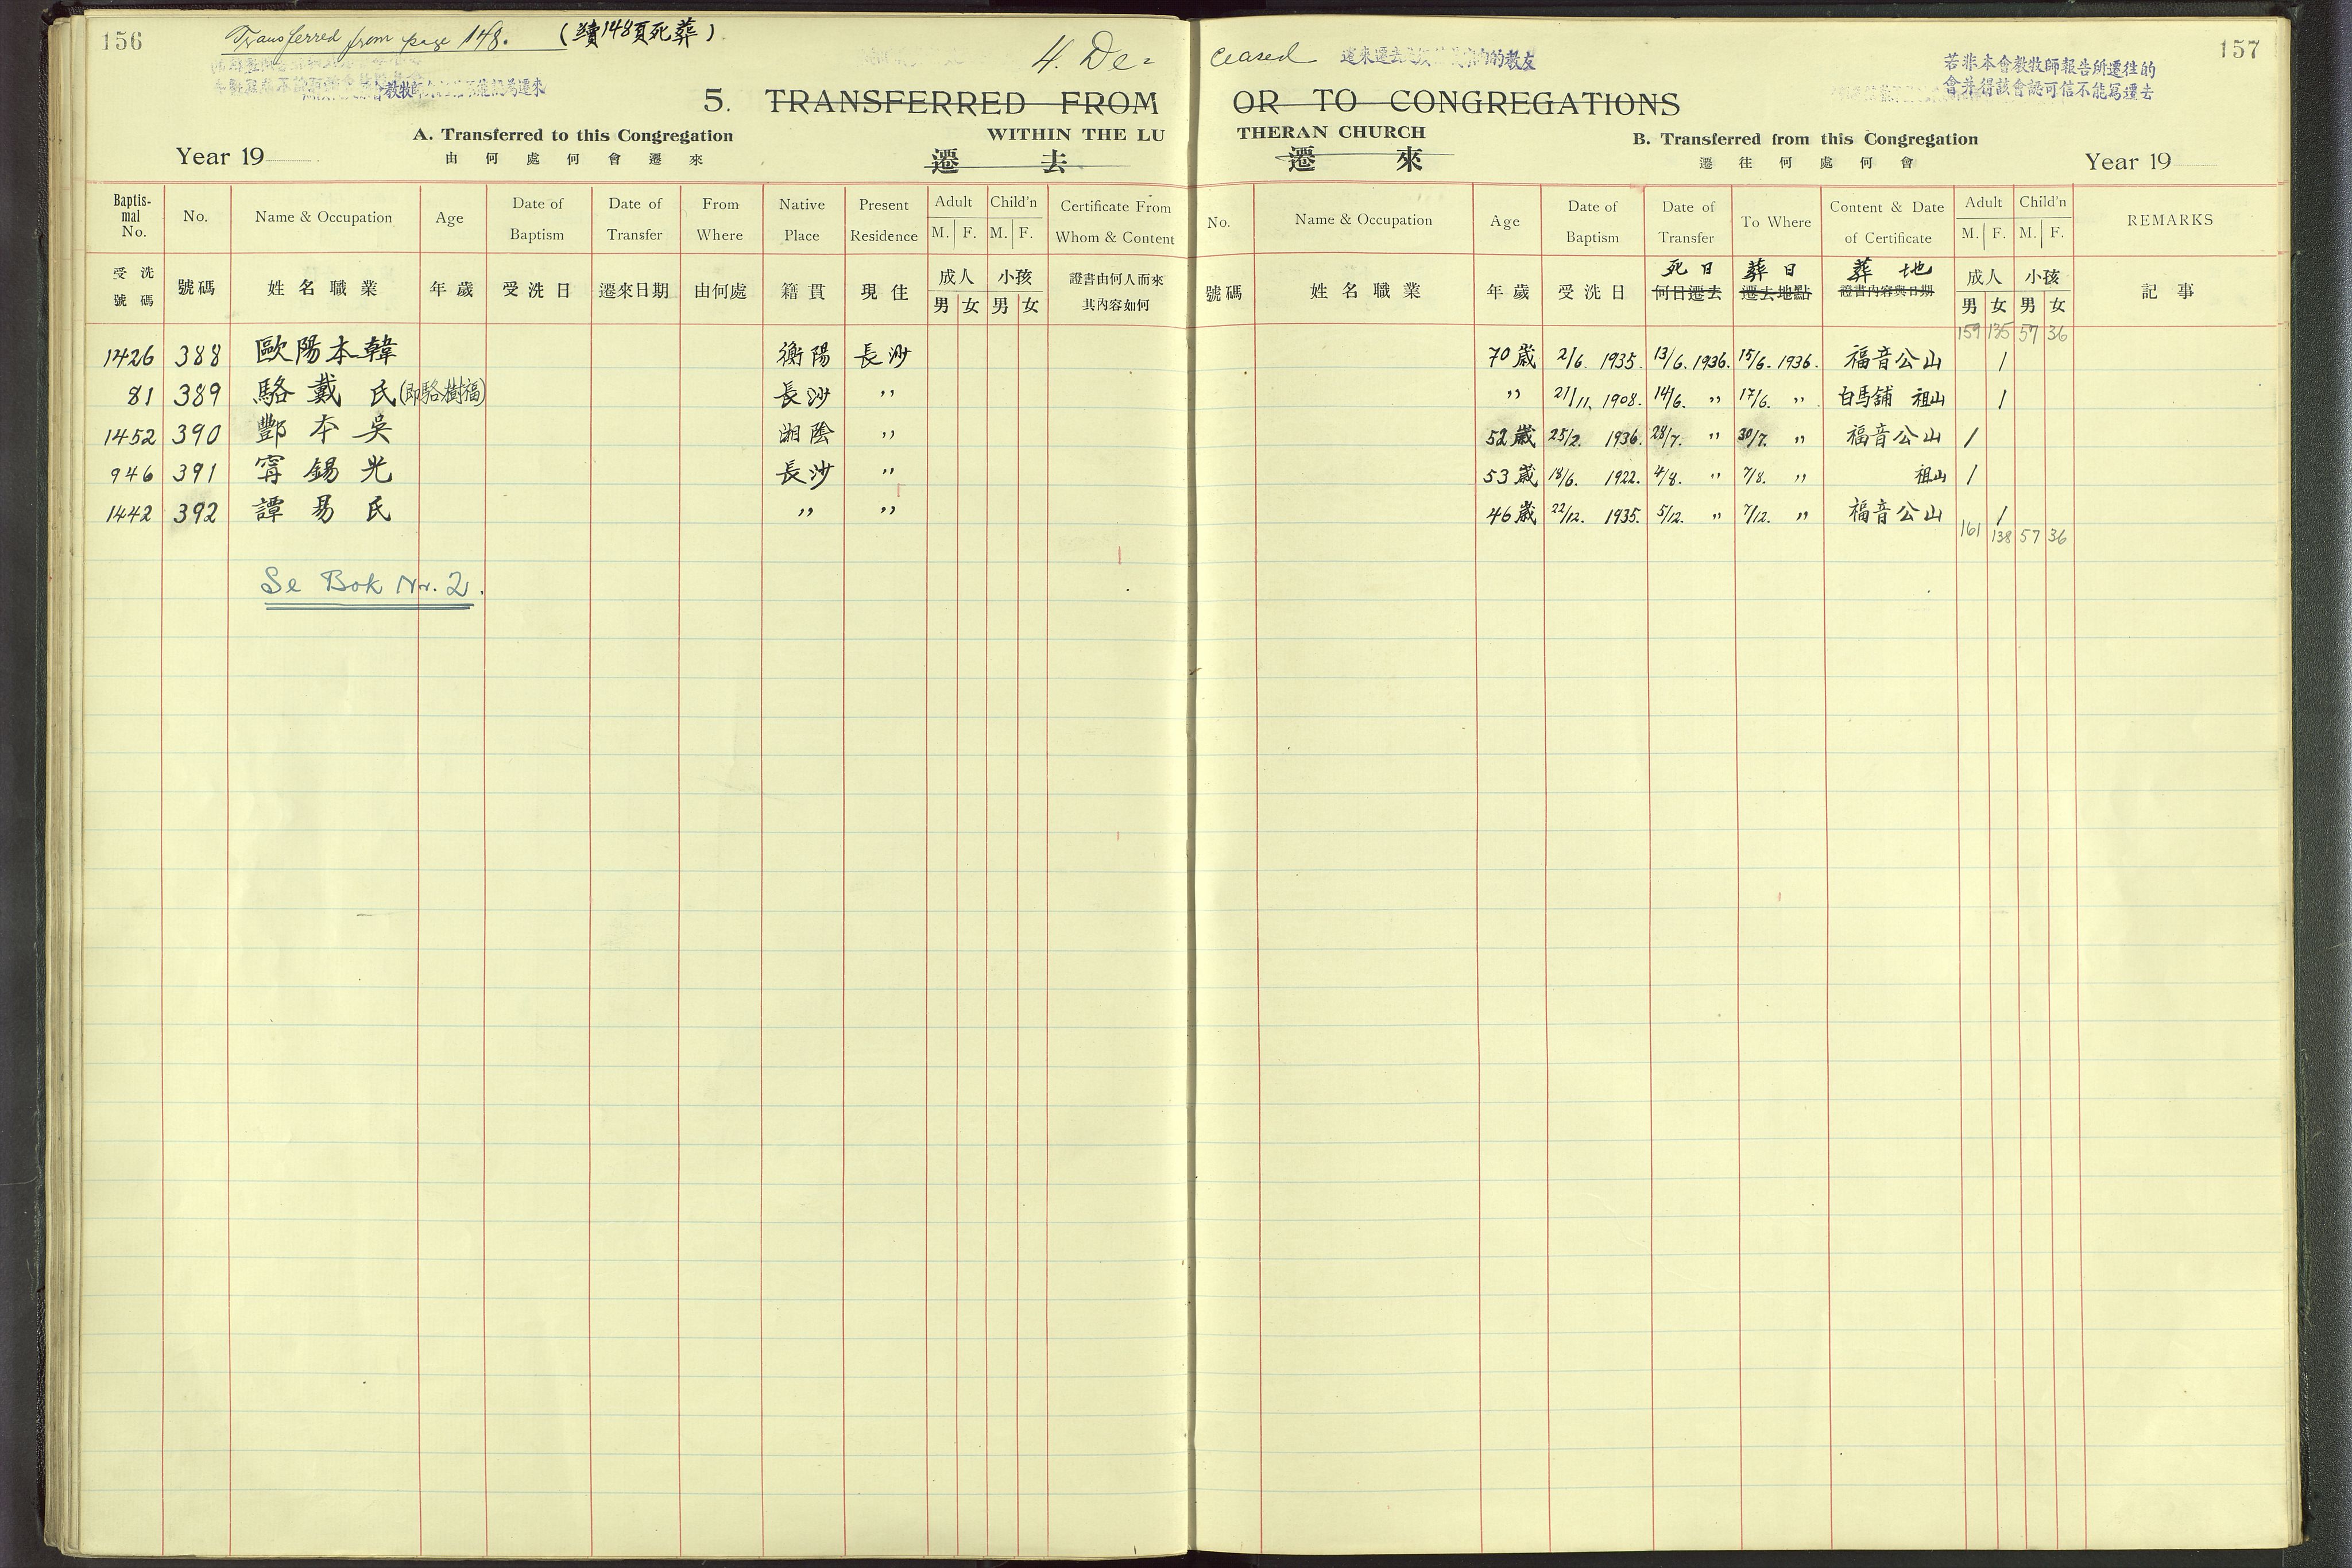 156
Transferred from page 148. (續148頁死葬)
4. De=
5. TRANSFERRED FROM
A. Transferred to this Congregation
WITHIN THE LU
Year 19
由何處何會遷來
遷去
Baptismal No. No. Name & Occupation Age Date of Baptism Date of Transfer From Where Native Place Present Residence Adult M. F. Child'n M. F. Certificate From Whom & Content
受洗號碼 號碼 姓名職業 年歲 受洗日 遷來日期 由何處 籍貫 現住 成人 男 女 小孩 男 女 證書由何人而來其內容如何
1426 388 歐陽本韓 衡陽 長沙
81 389 駱戴民(即駱樹福) 長沙 〃
1452 390 酆本吳 湘陰 〃
946 391 甯錫光 長沙 〃
1442 392 譚易民 〃 〃
Se Bok Nr. 2.
157
ceased
的教友
若非本會教牧師報告所遷往的
會并得該會認可信不能寫遷去
OR TO CONGREGATIONS
THERAN CHURCH
B. Transferred from this Congregation
遷來
遷往何處何會
Year 19
No. Name & Occupation Age Date of Baptism Date of Transfer To Where Content & Date of Certificate Adult M. F. Child'n M. F. REMARKS
死日 葬日 葬地
號碼 姓名職業 年歲 受洗日 何日遷去 遷去地點 證書內容與日期 成人 男 女 小孩 男 女 記事
159 135 57 36
70歲 2/6. 1935. 13/6. 1936. 15/6. 1936. 福音公山 /
〃 21/11. 1908. 14/6. 〃 17/6. 〃 白馬舖 祖山 /
52歲 25/2. 1936. 28/7. 〃 30/7. 〃 福音公山 /
53歲 18/6. 1922. 4/8. 〃 7/8. 〃 祖山 /
46歲 22/12. 1935. 5/12. 〃 7/12. 〃 福音公山 /
161 138 57 36